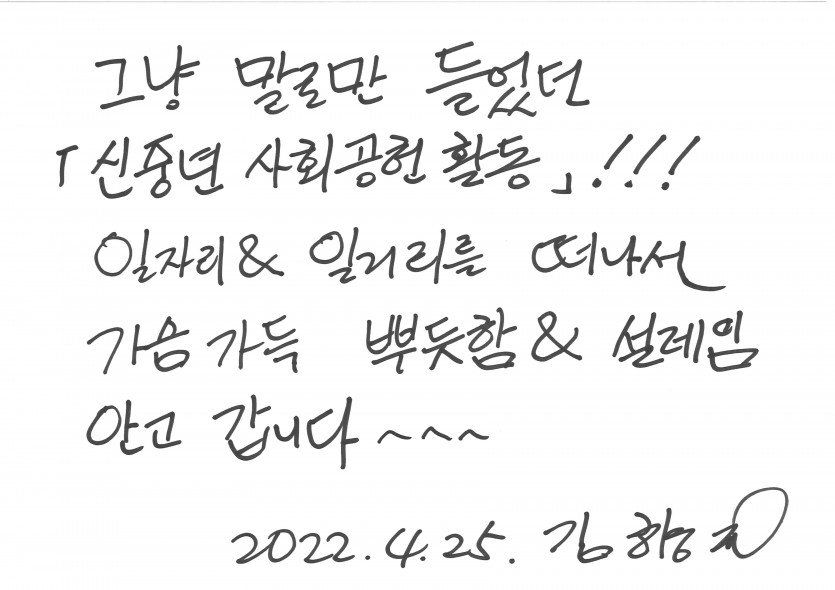 그냥 말로만 들었던
「신중년 사회공헌활동」!!!
일자리& 일거리를 떠나서
가슴가득 뿌듯함& 설레임
안고 갑니다~~~
2022.4.25. 김